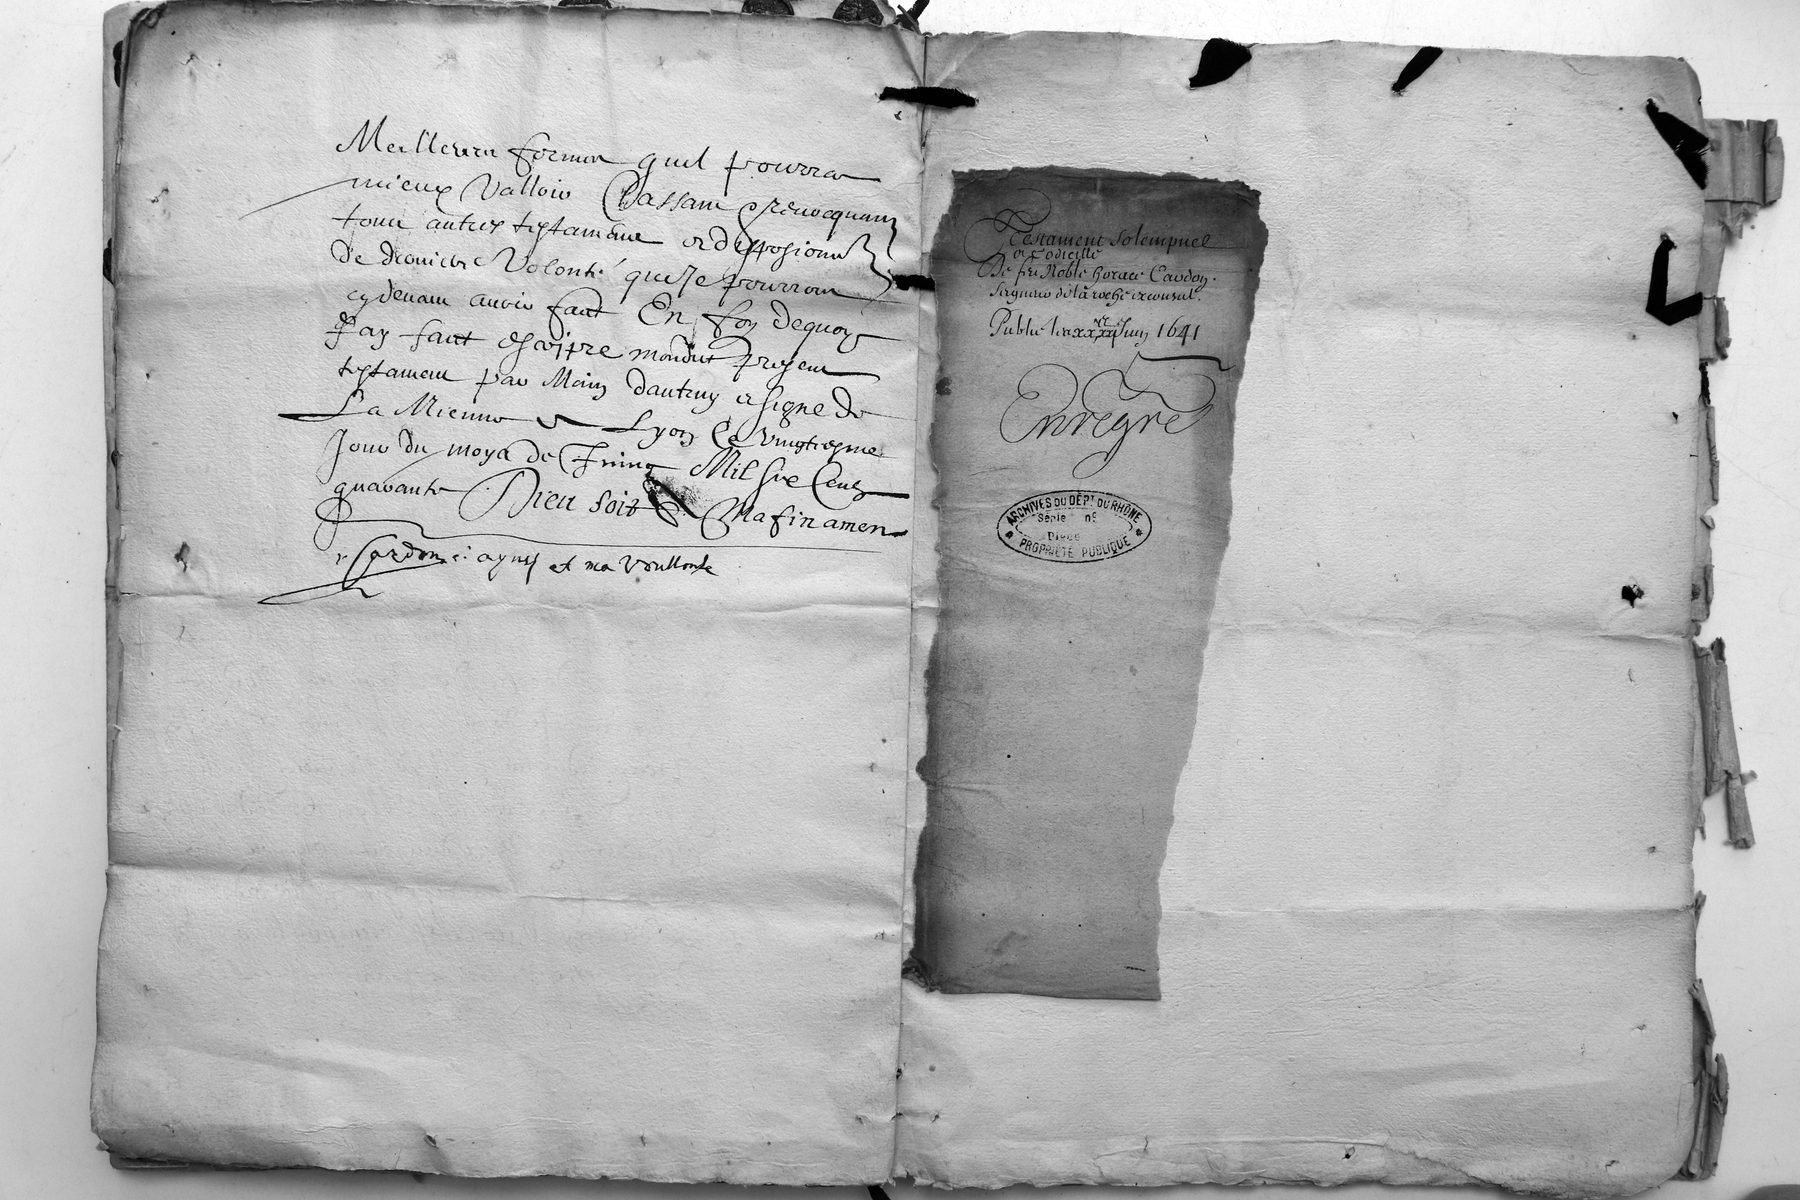 Meilleure forme quil pourra
mieux Valloir Cassant & revocquant
tous autres testamens et disposions
de derniere Volonté quese pourroit
cydevant avoir faict En foy dequoy
Jay faict escripre mondict present
testament par Main dautruy et signé de
La Mienne A Lyon Ce vingtiesme
Jour du moys de Mil six Cens
quarante Dieu soit Ma fin amen
Cardon: aynsy et ma voullonte
Testament solempnel
et Codicille
De feu Noble horace Cardon
seigneur de la roche exconsul.
Publié Juin 1641
Enregré
ARCHIVES DU DÉPT DU RHÔNE
Série n°
Pièce
PROPRIÉTÉ PUBLIQUE